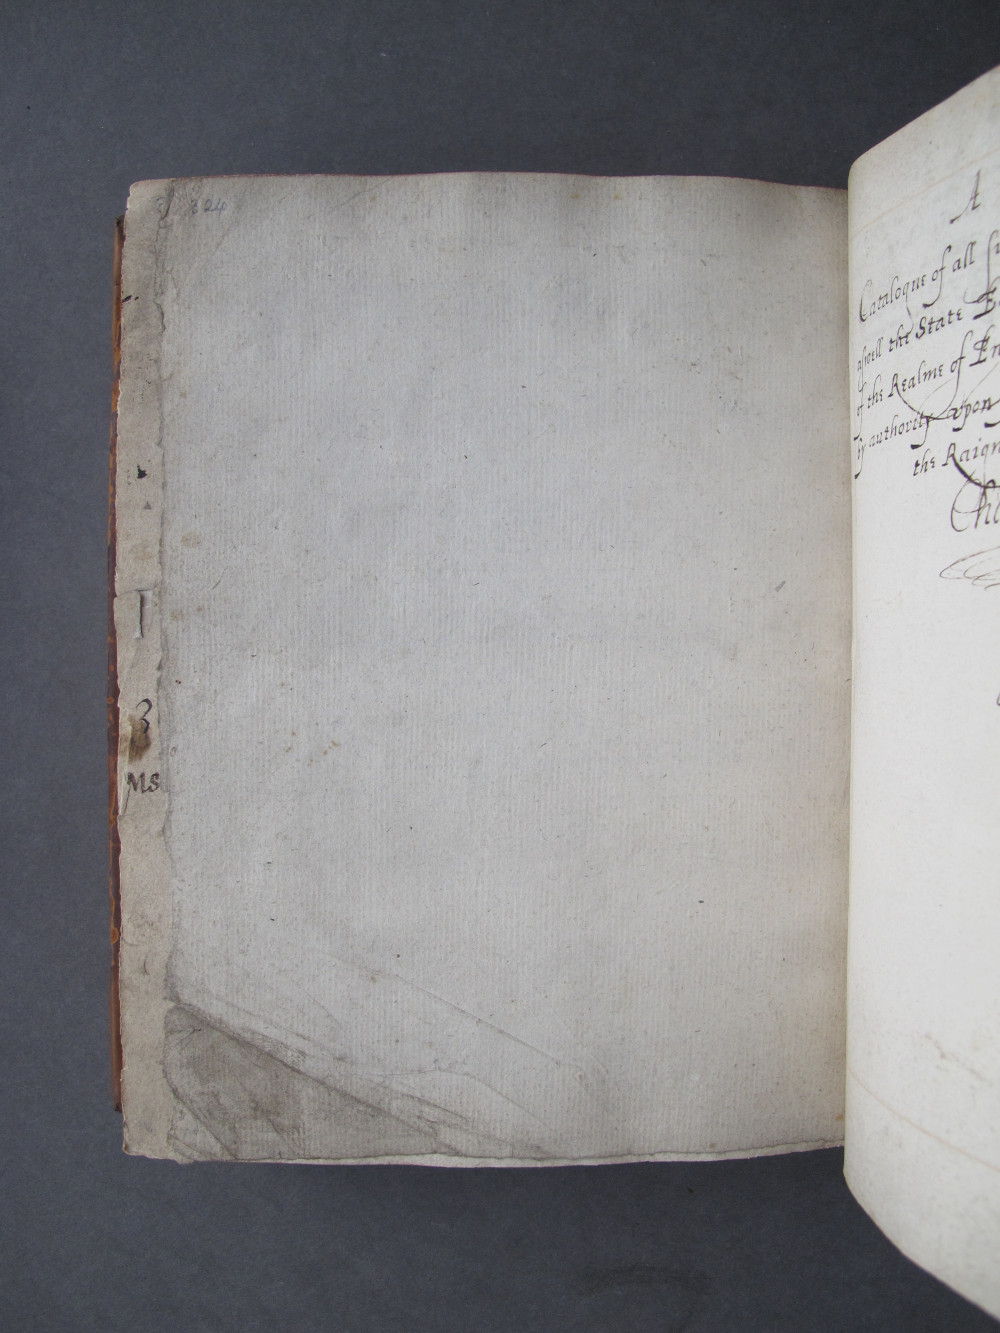 24
3
Ms
A
Catalogue of all
aswell the State
of the Realme of
by authority upon
the Raign